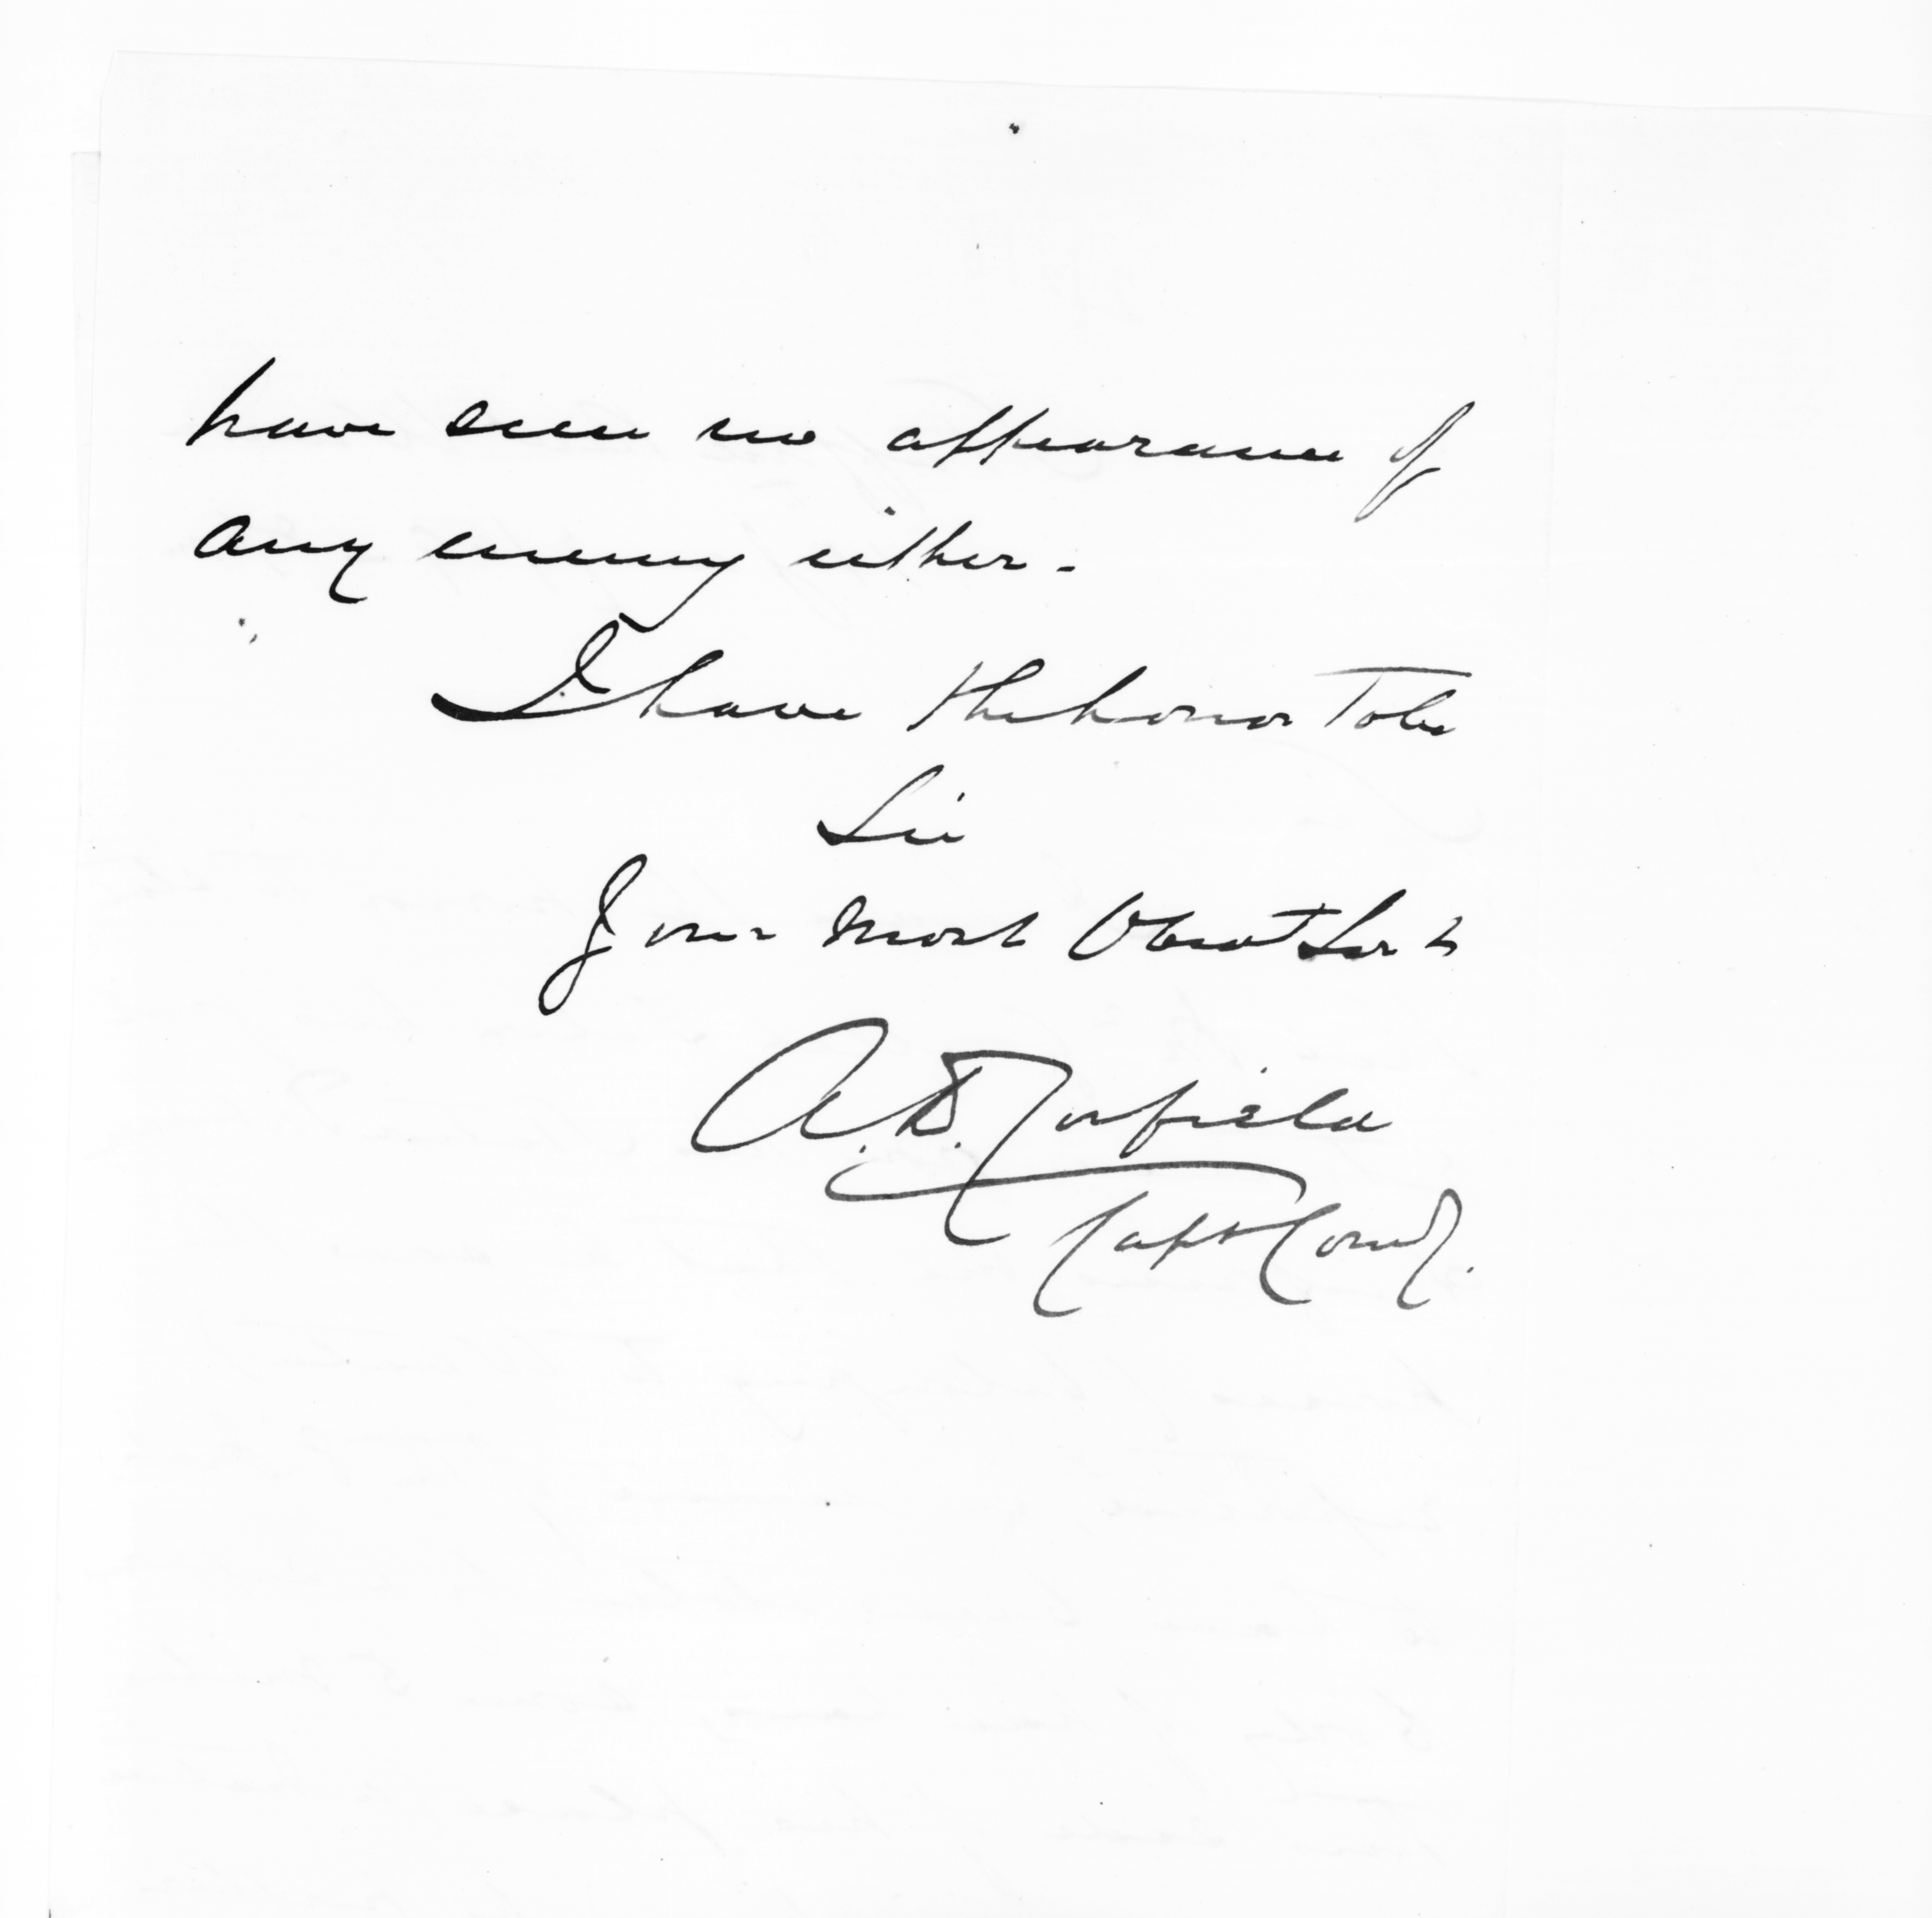 have seen no appearance of
any enemy either.
I have the honor to be
Sir
Your most Obent Servt
A. D. Corfield
Capt Comd.